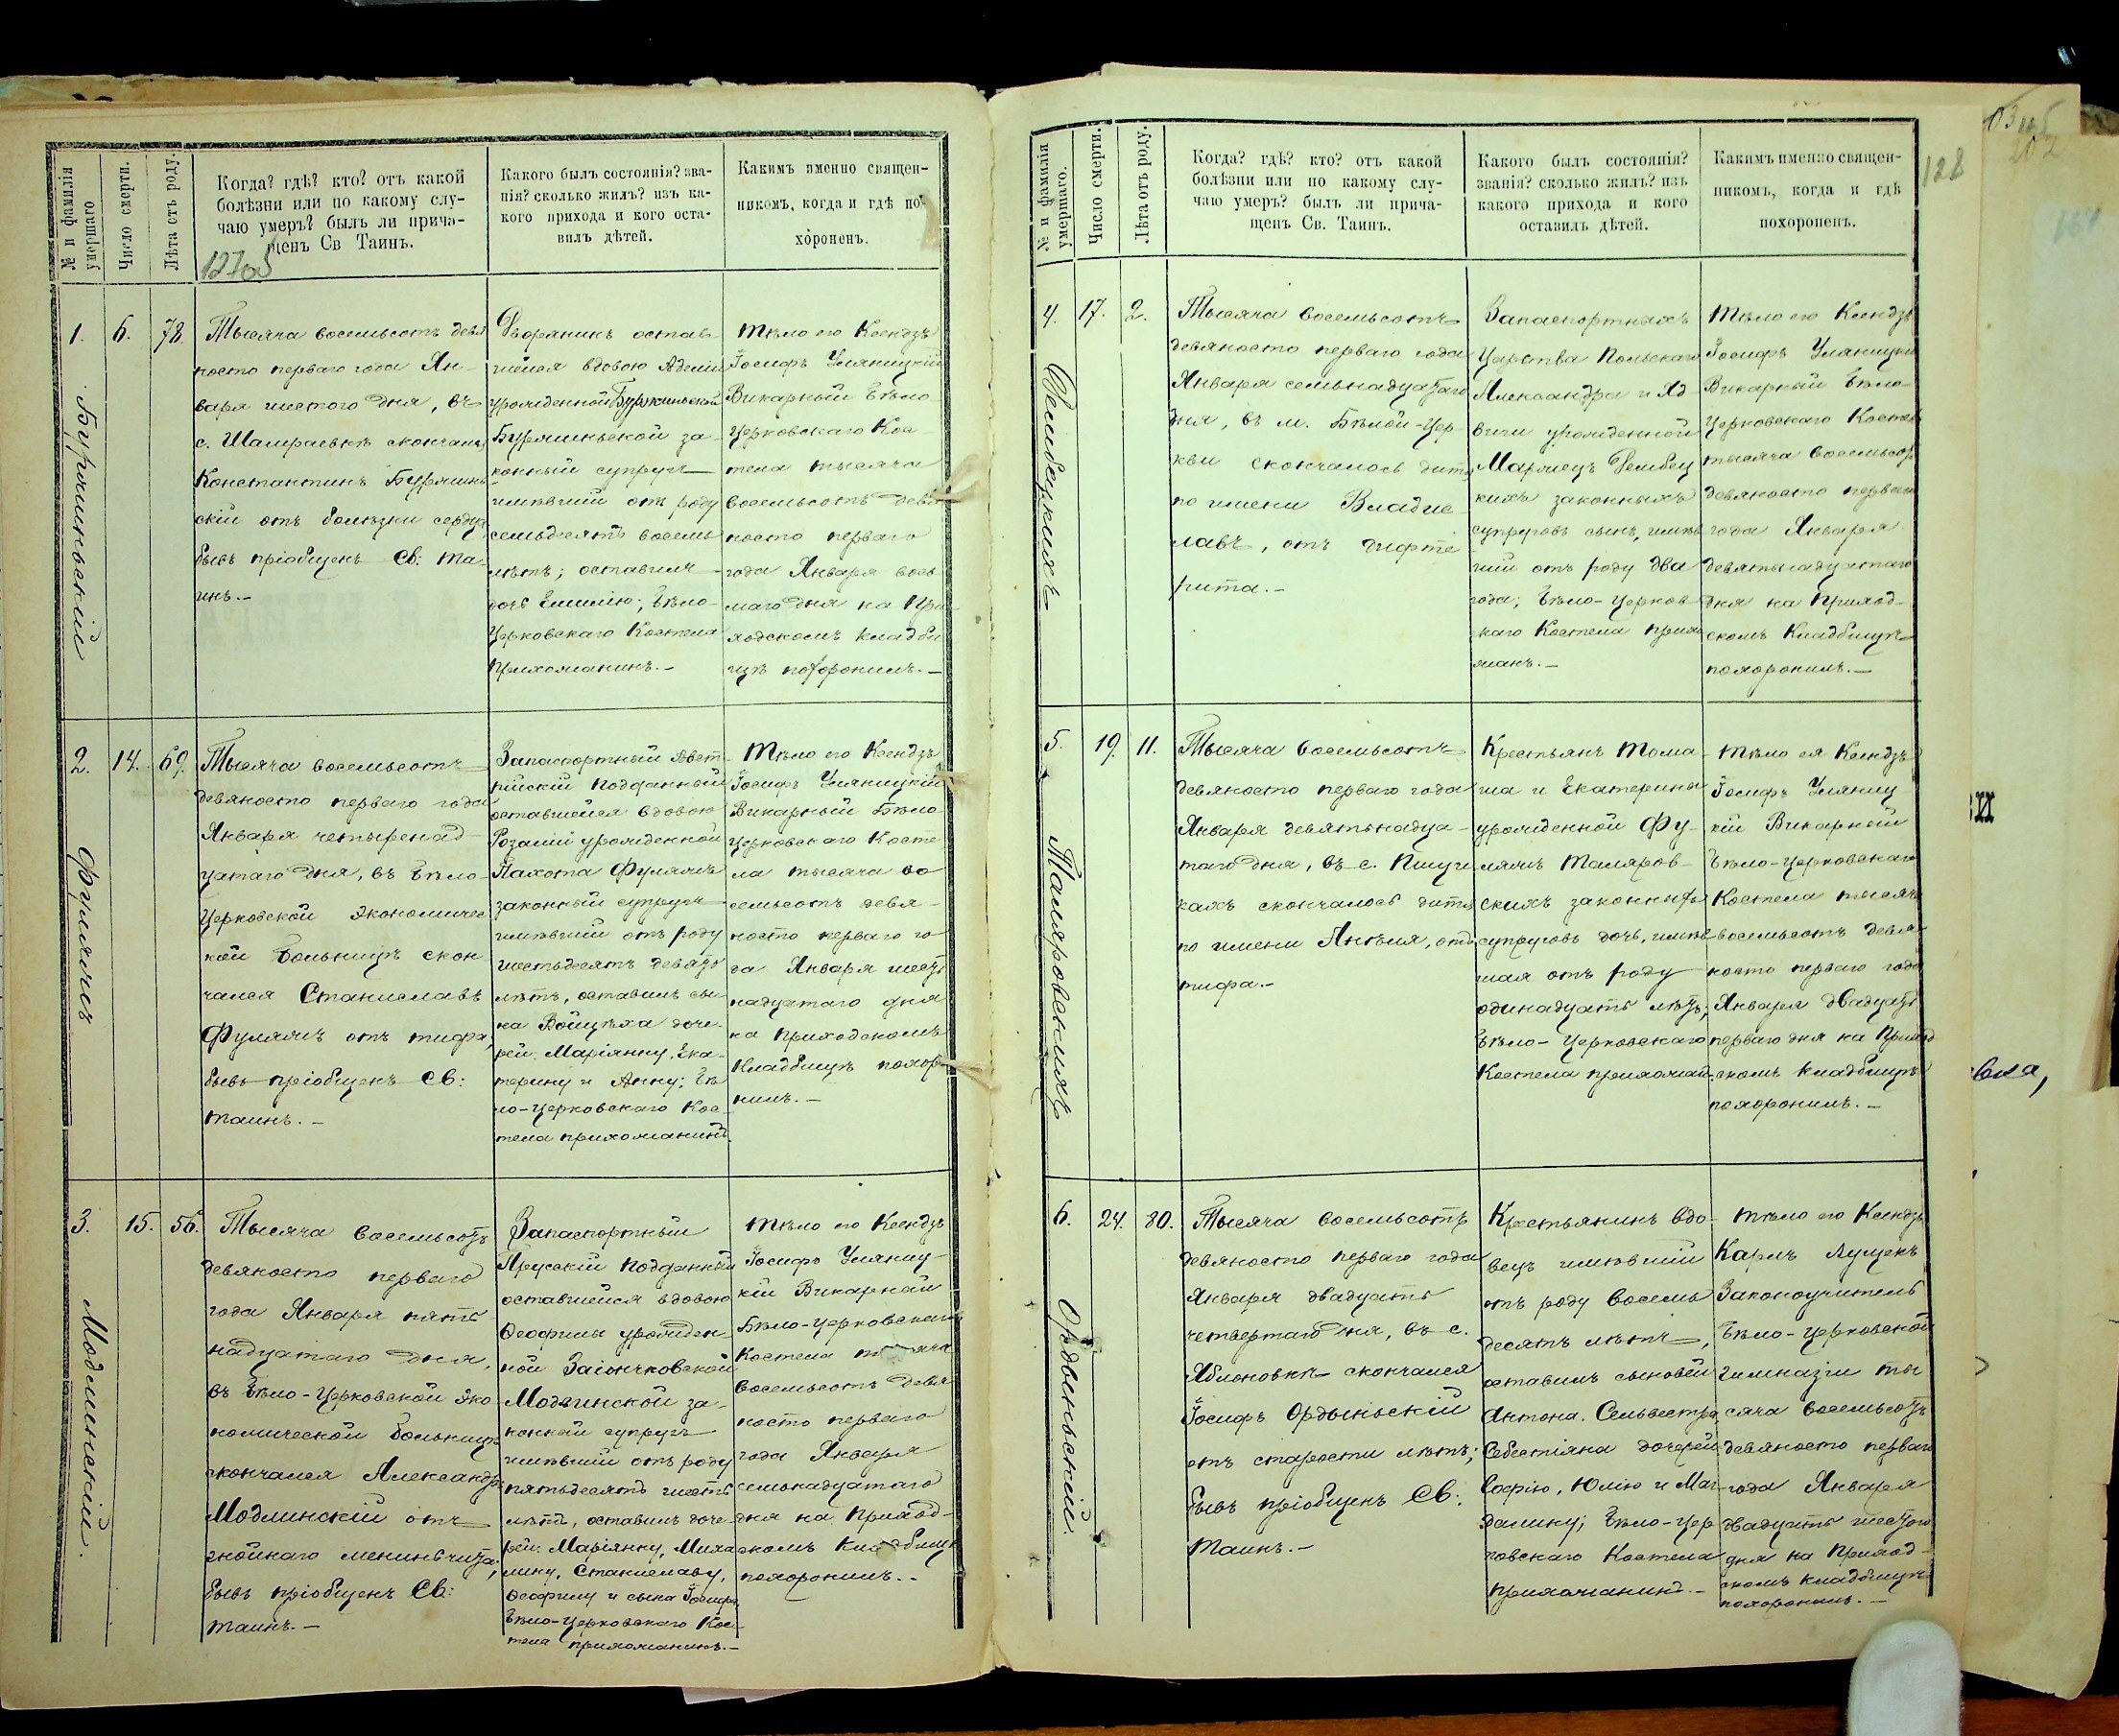 № и фамилія умершаго
Число смерти.
Лѣта отъ роду.
Когда? гдѣ? кто? отъ какой
болѣзни или по какому слу-
чаю умеръ? былъ ли прича-
щенъ Св Таинъ.
Какого былъ состоянія? зва-
нія? сколько жилъ? изъ ка-
кого прихода и кого оста-
вилъ дѣтей.
Какимъ именно священ-
никомъ, когда и гдѣ по-
хороненъ.
1.
Буряиньскій
6.
78.
Тысяча восемьсотъ девя
носто перваго года Ян-
варя шестого дня, въ
с. Шамраевкѣ скончался
Константинъ Буряинь
скій отъ болѣзни сердца
бывъ пріобщенъ Св: Та-
инъ.-
Дворянинъ остав-
шейся вдовою Аделіи
урожденной
Буряиньской за-
конный супругъ
имѣвшій отъ роду
семьдесятъ восемь
лѣтъ; оставилъ
дочь Емилію; Бѣло-
Церковскаго Костела
прихожанинъ.-
Тѣло его Ксендзъ
Іосифъ Уляницкій
Викарный Бѣло
Церковскаго Кос-
тела тысяча
восемьсотъ девя
носто перваго
года Января вось
маго дня на При
ходскомъ кладби
щѣ похоронилъ.-
2.
Фулямъ
14.
69.
Тысяча восемьсотъ
девяносто перваго года
Января четыренад
цатаго дня, въ Бѣло-
Церковской экономичес
кой больницѣ скон
чался Станиславъ
Фулямъ отъ тифа,
бывъ пріобщенъ Св:
Таинъ.-
Запаспортный Авст-
рійскій подданный
оставшейся вдовою
Розаліи урожденной
Пахота Фулямъ
законный супругъ
имѣвшій отъ роду
шестьдесятъ девять
лѣтъ, оставилъ сы-
на Войцѣха доче-
рей: Маріянну, Ека-
терину и Анну; Бѣ
ло-Церковскаго Кос-
тела прихожанинъ.
Тѣло его Ксендзъ
Іосифъ Уляницкій
Викарный Бѣло
Церковскаго Косте
ла тысяча во
семьсотъ девя-
носто перваго го
да Января шест
надцатаго дня
на приходскомъ
кладбищѣ похоро
нилъ.-
3.
Модлинскій.
15.
56.
Тысяча восемьсотъ
девяносто перваго
года Января пять
надцатаго дня,
въ Бѣло-Церковской эко
номической больницѣ
скончался Александръ
Модлинскій отъ
гнойнаго менингита,
бывъ пріобщенъ Св:
Таинъ.-
Запаспортный
Прусскій подданный
оставшейся вдовою
Ѳеофилы урожден
ной Заіончковской
Модлинской за-
конный супругъ
имѣвшій отъ роду
пятьдесятъ шесть
лѣтъ, оставилъ доче-
рей: Маріянну, Миха
лину, Станиславу,
Ѳеофилу и сына Іосифа
Бѣло-Церковскаго Кос-
тела прихожанинъ.-
Тѣло его Ксендзъ
Іосифъ Уляниц-
кій Викарный
Бѣло-Церковскаго
Костела тысяча
восемьсотъ девя
носто перваго
года Января
семьнадцатаго
дня на приход-
скомъ кладбищѣ
похоронилъ.-
№ и фамилія умершаго.
Число смерти.
Лѣта отъ роду.
Когда? гдѣ? кто? отъ какой
болѣзни или по какому слу-
чаю умеръ? былъ ли прича-
щенъ Св. Таинъ.
Какого былъ состоянія?
званія? сколько жилъ? изъ
какого прихода и кого
оставилъ дѣтей.
Какимъ именно священ-
никомъ, когда и гдѣ
похороненъ.
128
4.
17.
2.
Тысяча восемьсотъ
девяносто перваго года
Января семьнадцатаго
дня, въ м. Бѣлой-Цер-
кви скончалось дитя
по имени Владис
лавъ, отъ дифте
рита.-
Запаспортныхъ
Царства Польскаго
Александра и Яд-
виги урожденной
кихъ законныхъ
супруговъ сынъ, имѣв
шій отъ роду два
года; Бѣло-Церков
скаго Костела прихо
жанъ.-
Тѣло его Ксендзъ
Іосифъ Уляницкій
Викарный Бѣло-
Церковскаго Костела
тысяча восемьсотъ
девяносто перваго
года Января
девятьнадцатаго
дня на приход-
скомъ кладбищѣ
похоронилъ.-
5.
Маляровскихъ
19.
11.
Тысяча восемьсотъ
девяносто перваго года
Января девятьнадца-
таго дня, въ с. Пищи
кахъ скончалось дитя
по имени Анеля, отъ
тифа.-
Крестьянъ Тома-
ша и Екатерины
урожденной Фу-
лямъ Маляров-
скихъ законныхъ
супруговъ дочь, имѣв
шая отъ роду
одинадцать лѣтъ;
Бѣло-Церковскаго
Костела прихожан.
Тѣло ея Ксендзъ
Іосифъ Уляниц
кій Викарный
Бѣло-Церковскаго
Костела тысяча
восемьсотъ девя
носто перваго года
Января двадцать
перваго дня на Приход
скомъ кладбищѣ
похоронилъ.-
6.
Ордыньскій.
24.
80.
Тысяча восемьсотъ
девяносто перваго года
Января двадцать
четвертаго дня, въ с.
Яблоновкѣ скончался
Іосифъ Ордыньскій
отъ старости лѣтъ;
бывъ пріобщенъ Св:
Таинъ.-
Крестьянинъ вдо-
вецъ имѣвшій
отъ роду восемь
десятъ лѣтъ,
оставилъ сыновей
Антона, Сельвестра
Себестіяна дочерей
Софію, Юлію и Маг-
далину; Бѣло-Цер
ковскаго Костела
прихожанинъ.-
Тѣло его Ксендзъ
Карлъ Лущекъ
Законоучитель
Бѣло-Церковской
гимназіи ты
сяча восемьсотъ
девяносто перваго
года Января
двадцать шестого
дня на Приход-
скомъ кладбищѣ
похоронилъ.-
вка,